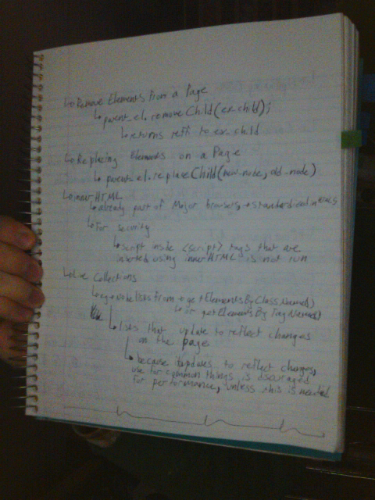 ↳ Remove Elements from a Page
↳ parent.el.removeChild(ex.child);
↳ returns ref. to ex.child
↳ Replacing Elements on a Page
↳ parent.el.replaceChild(new.node, old.node)
↳ innerHTML
↳ already part of Major browsers, standardized in HTML5
↳ For security
↳ script inside <script> tags that are
inserted using innerHTML is not run
↳ Live Collections
↳ generates lists from getElementsByClassName()
↳ or getElementsByTagName()
↳ Lists that update to reflect changes
on the page
↳ because it updates to reflect changes,
use for common things is discouraged
for performance, unless this is needed